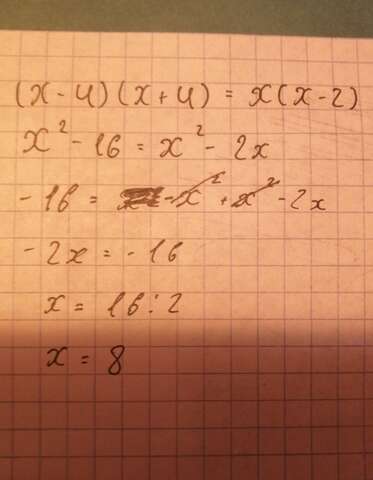 (x-4)(x+4) = x(x-2)
x² - 16 = x² - 2x
-16 = -x² + x² - 2x
-2x = -16
x = 16 : 2
x = 8